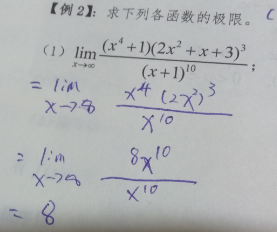 【例2】：求下列各函数的极限。
(1) \lim_{x→∞} \frac{(x^4+1)(2x^2+x+3)^3}{(x+1)^{10}}；
= \lim_{x→∞} \frac{x^4 (2x^2)^3}{x^{10}}
= \lim_{x→∞} \frac{8x^{10}}{x^{10}}
= 8